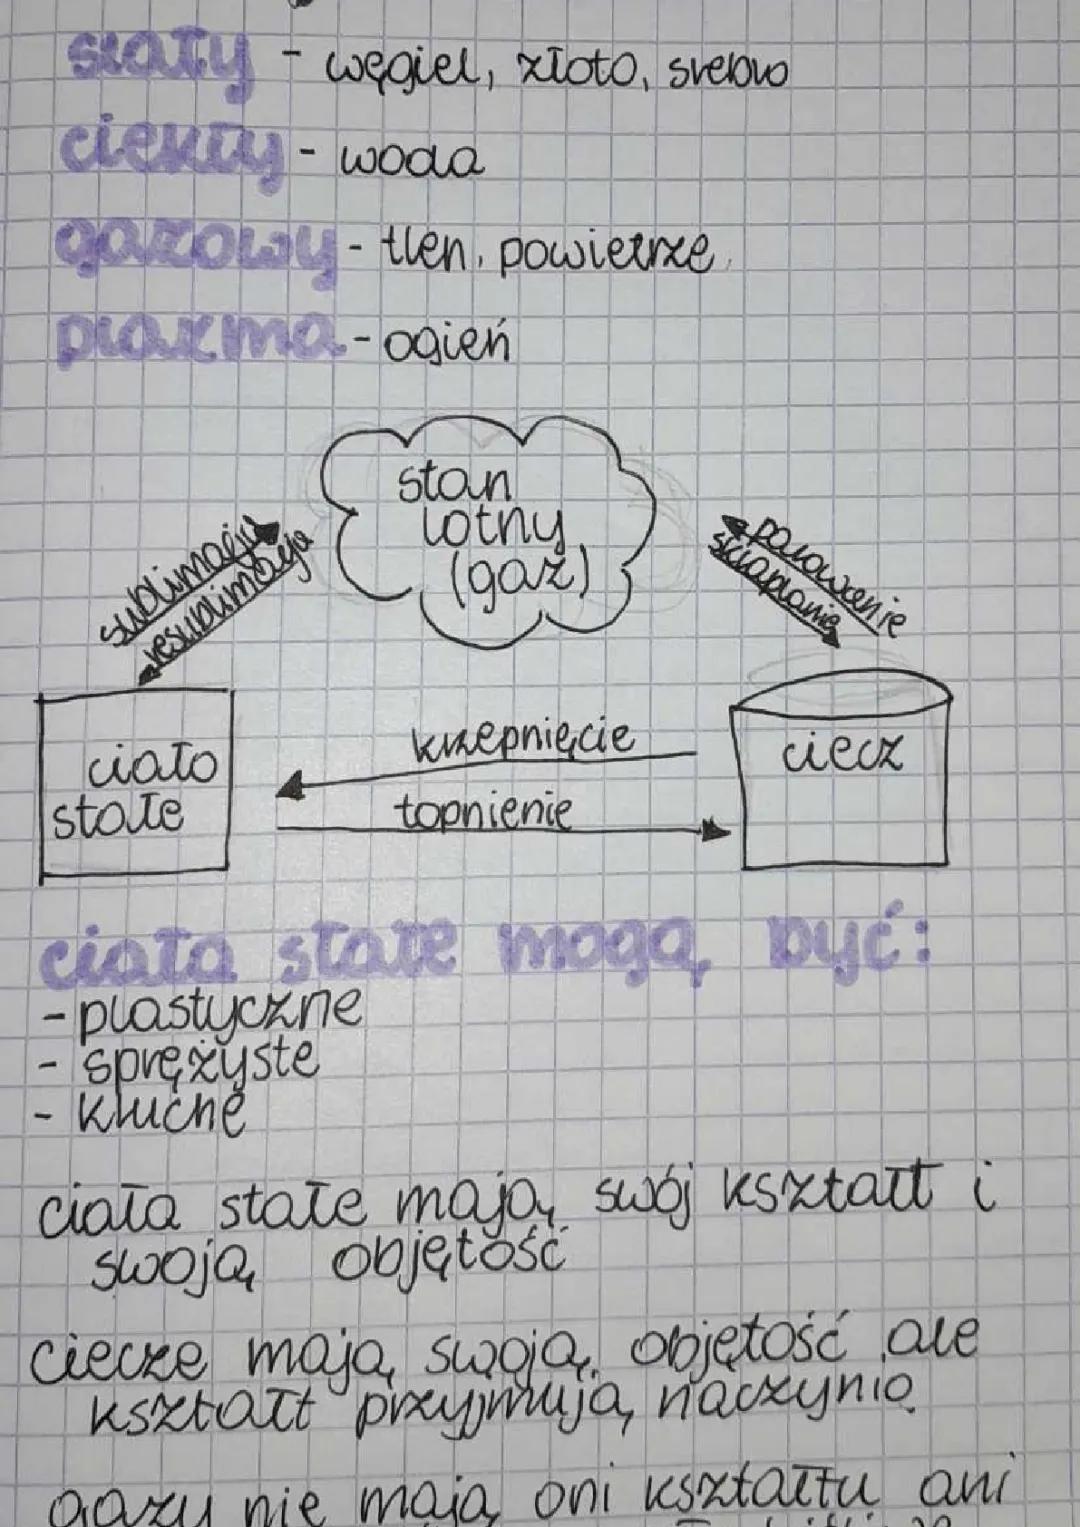 stały - węgiel, złoto, srebro
ciekły - woda
gazowy - tlen, powietrze
plazma - ogień
stan
lotny
(gaz)
sublimacja
resublimacja
parowanie
skraplanie
ciało
stałe
krzepnięcie
topnienie
ciecz
ciała stałe mogą być:
- plastyczne
- sprężyste
- kruche
ciała stałe mają swój kształt i
swoją objętość
ciecze mają swoją objętość ale
kształt przyjmują naczynia
gazy nie mają ani kształtu ani